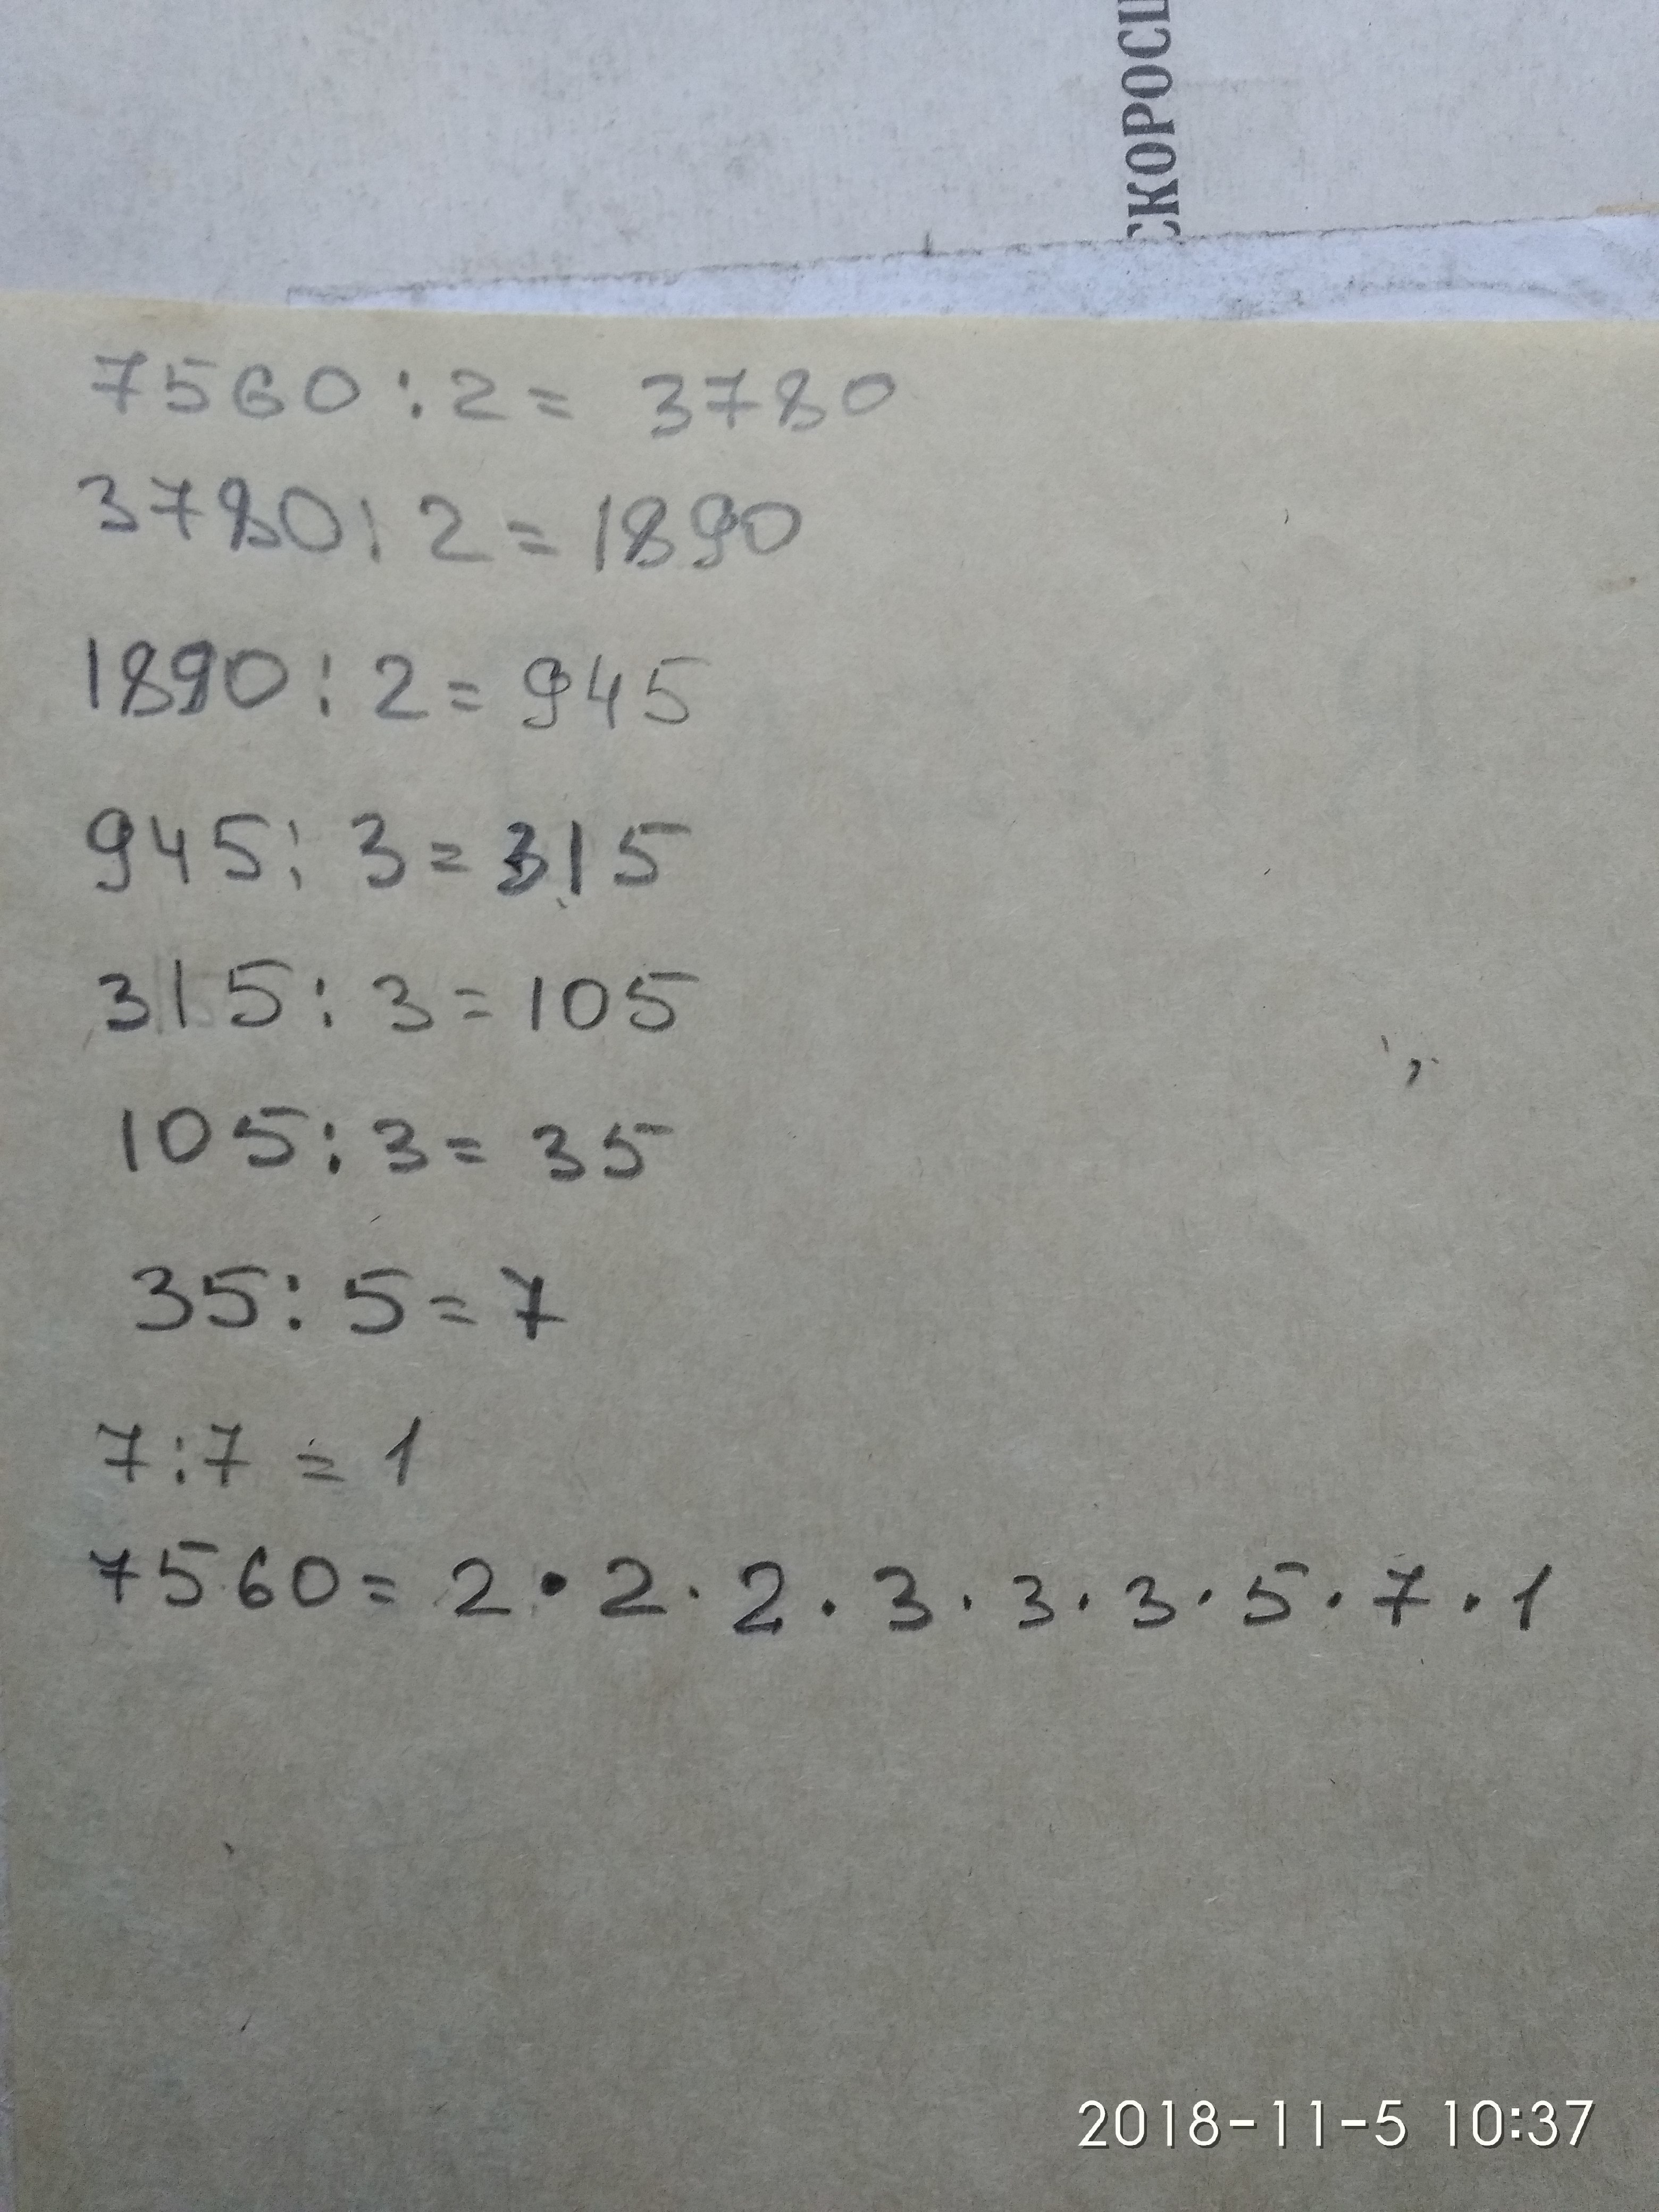 СКОРОС
7560:2=3780
3780:2=1890
1890:2=945
945:3=315
315:3=105
105:3=35
35:5=7
7:7=1
7560=2·2·2·3·3·3·5·7·1
2018-11-5 10:37